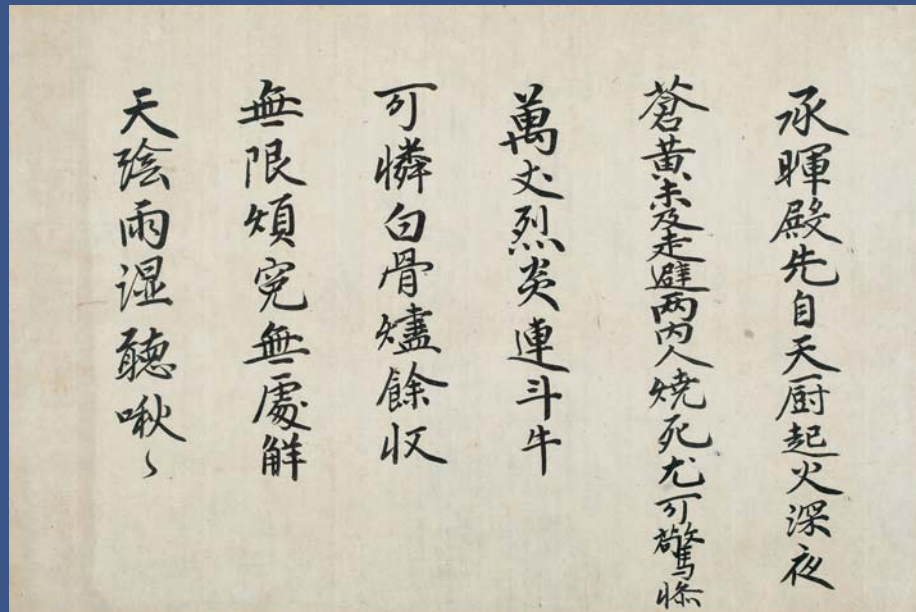 承暉殿先自天厨起火深夜
蒼黄未及走避兩内人燒死尤可驚惨
萬丈烈炎連斗牛
可憐白骨燼餘收
無限煩冤無處解
天陰雨湿聽啾〻